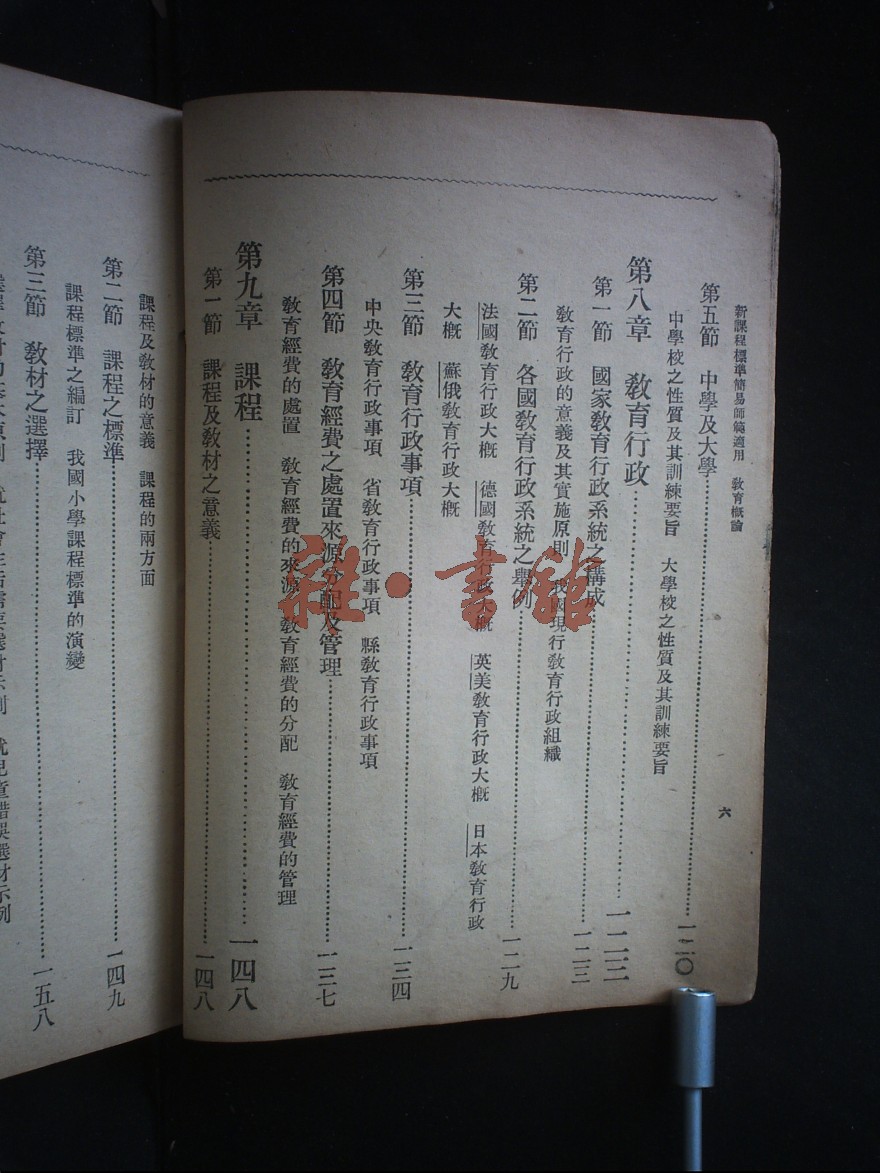 新課程標準簡易師範適用　教育概論
六
第五節　中學及大學……一二〇
中學校之性質及其訓練要旨　大學校之性質及其訓練要旨
第八章　教育行政……一二三
第一節　國家教育行政系統之構成……一二三
教育行政的意義及其實施原則　我國現行教育行政組織
第二節　各國教育行政系統之舉例……一二九
法國教育行政大概　德國教育行政大概　英美教育行政大概　日本教育行政
大概　蘇俄教育行政大概
第三節　教育行政事項……一三四
中央教育行政事項　省教育行政事項　縣教育行政事項
第四節　教育經費之處置來源分配及管理……一三七
教育經費的處置　教育經費的來源　教育經費的分配　教育經費的管理
第九章　課程……一四八
第一節　課程及教材之意義……一四八
課程及教材的意義　課程的兩方面
第二節　課程之標準……一四九
課程標準之編訂　我國小學課程標準的演變
第三節　教材之選擇……一五八
雜·書館